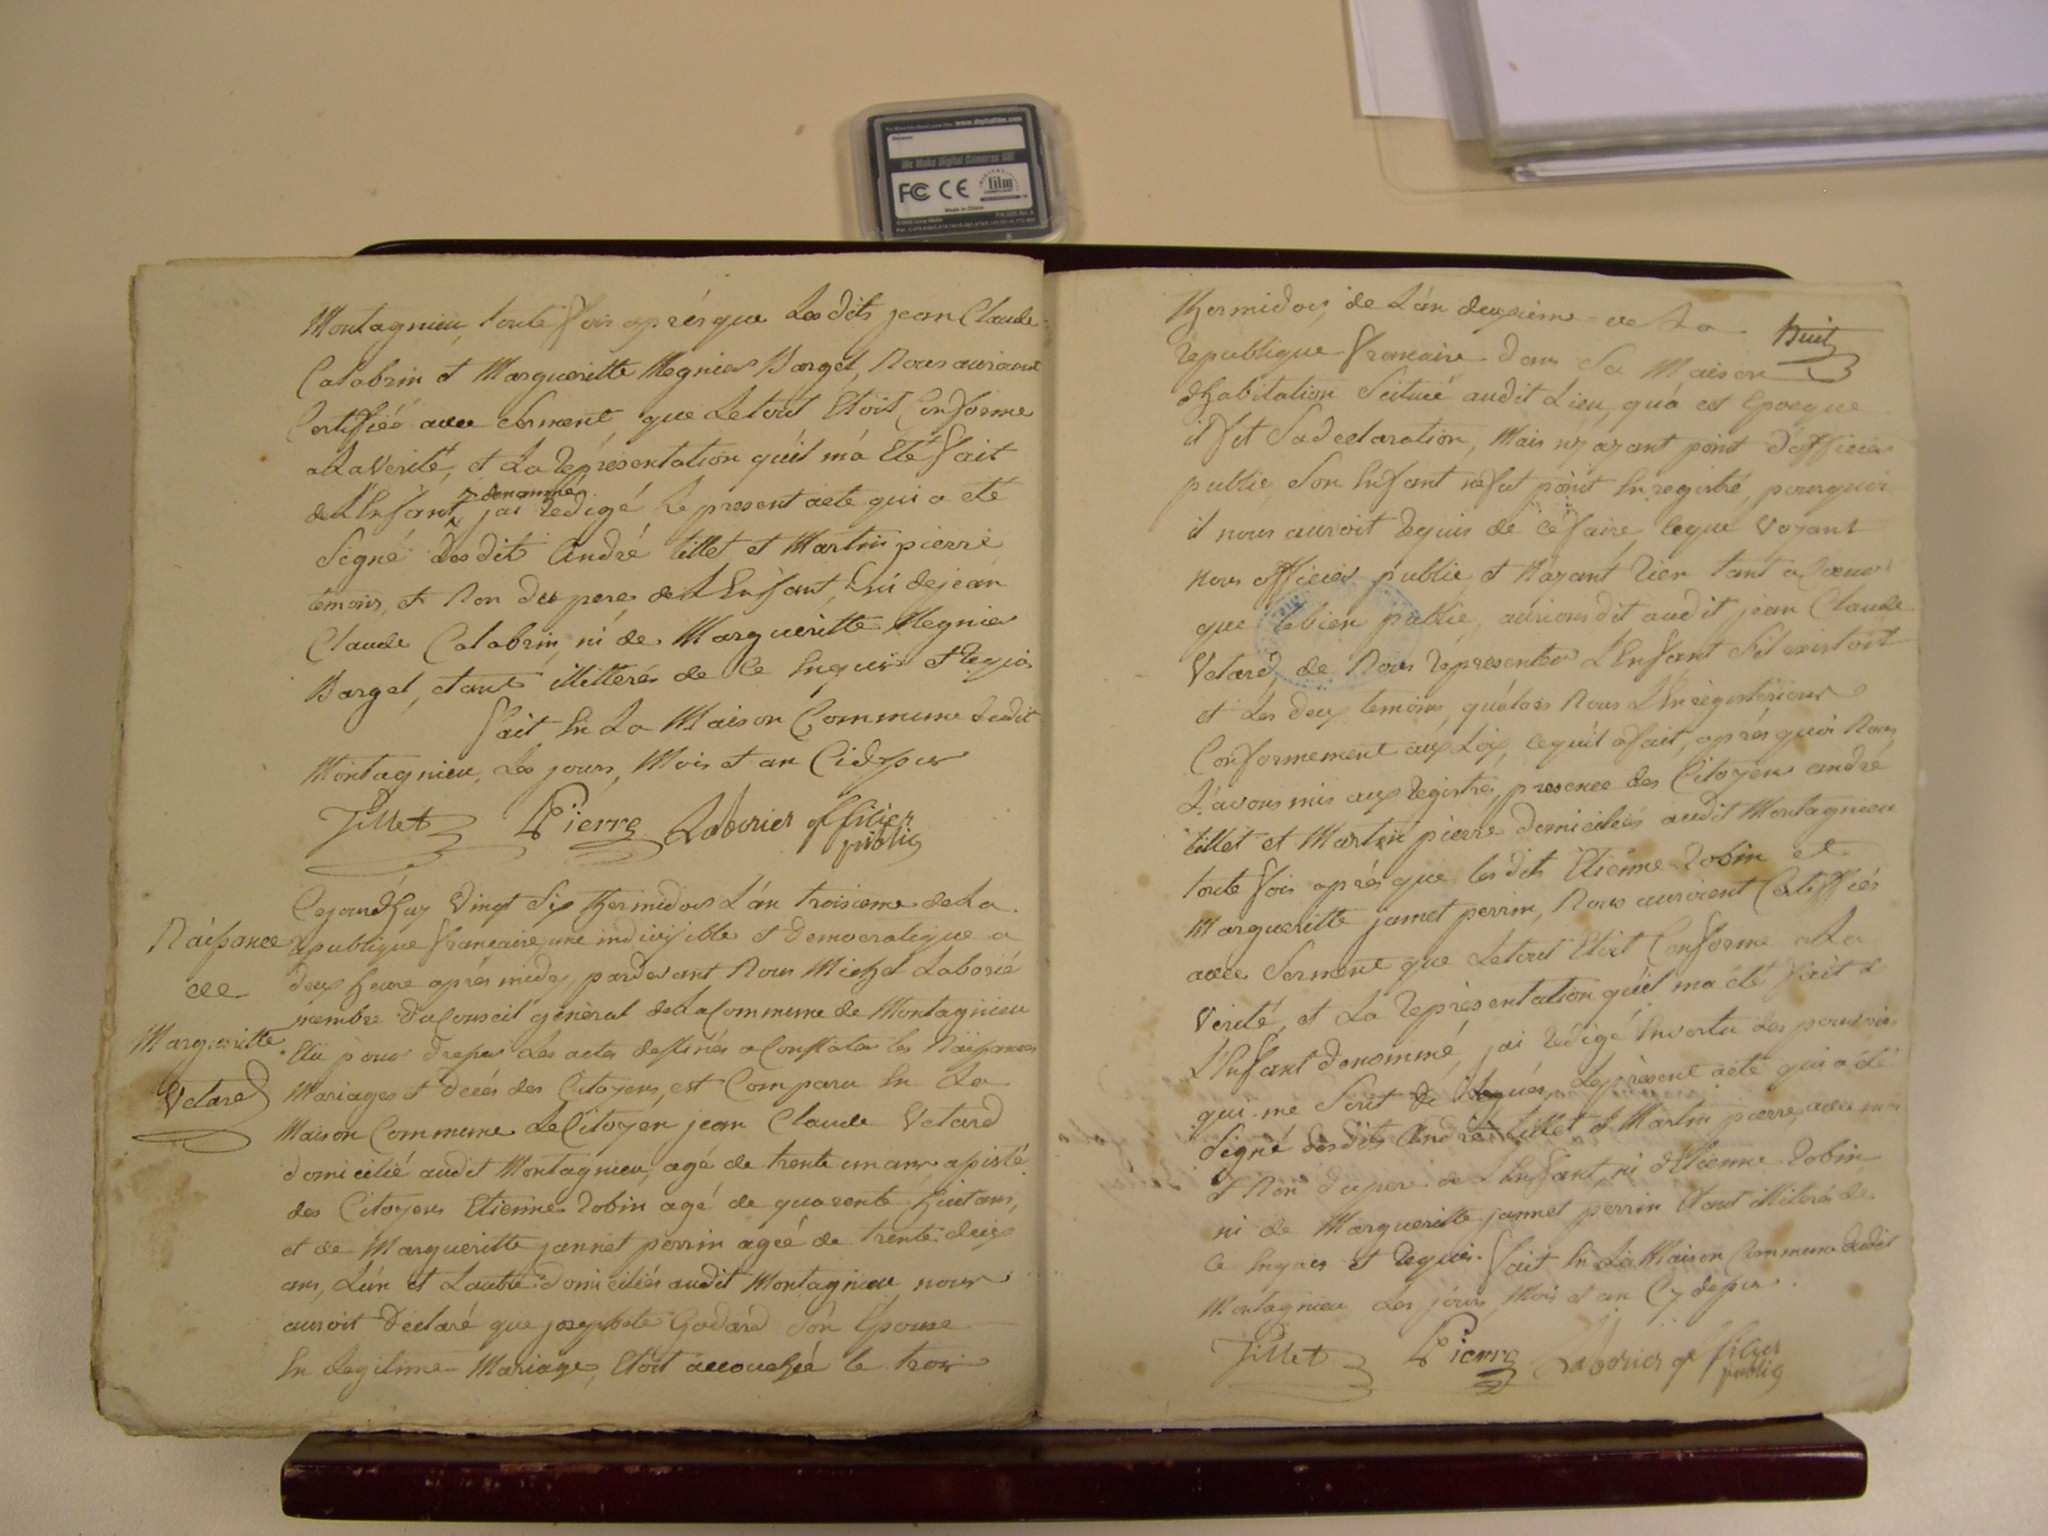 www.digitalfilm.com
We Make Digital Cameras GO!
FC CE
film
Made in China
Montagnieu, toute fois après que Les dits jean Claude
Calabrin et Margueritte Megnier Barget, Nous auroient
Certiffiés avec serment que Le tout Etoit Conforme
a La Verité, et La représentation qu'il m'a Eté fait
denommé
de L'Enfant jai rédigé Le present acte qui a eté
Signé des dits André tillet et Martin pierre
temoins, et Non du pere de L'Enfant, ni de jean
Claude Calabrin, ni de Margueritte Megnier
Barget, étant illitterés de Ce Enquis et Requis
fait En La Maison Commune dudit
Montagnieu, Les jours, Mois et an Cidessus
Tillet Pierre Laborier officier
public
Naissance
de
Margueritte
Vetard
Cejourd'huy Vingt Six thermidor L'án troisieme de La
republique francaire une indivisible et democratique a
deux heure après midy, pardevant Nous Michel Laborié
membre du Conseil génèral de La Commune de Montagnieu
Elu pour dresser Les actes destinés a Constater les Naissances
Mariages et décés des Citoyens, est Comparu En La
Maison Commune Le Citoyen jean Claude Vetard
domicilié audit Montagnieu, agé de trente un ans, apisté
des Citoyens Etienne Robin agé de quarente huit ans,
et de Margueritte jannet perrin agée de trente deux
ans, L'un et L'autre domiciliés audit Montagnieu, nous
auroit déclaré que josephte Godard Son Epouse
En Legitime Mariage, Etoit accouchée le trois
huit
thermidor, de L'án deuxieme de La
republique francaire dans Sa Maison
d'habitation Scituée audit Lieu, qu'a cet Epoque
il fit Sa declaration, Mais n'y ayant point d'officier
public, Son Enfant ne fut point Enregistré, pourquoi
il nous auroit requis de Ce faire, Ce que Voyant
nous officier public, et Nayant rien tant a Coeur
que le bien public, aurions dit audit jean Claude
Vetard, de Nous representer L'Enfant S'il existoit
et Les deux temoins, qu'alors Nous L'Enregistrerions
Conformement aux Loix, Ce qu'il a fait, après quoi Nous
L'avons mis aux registres, presence des Citoyens andré
tillet et Martin pierre domiciliés audit Montagnieu
toute fois après que les dits Etienne Robin et
Margueritte jannet perrin, Nous auroient Certiffiés
avec Serment que Le tout Etoit Conforme a La
Verité, et La représentation qu'il m'a été fait de
L'Enfant denommé, jai rédigé En vertu des pouvoirs
qui me Sont délégués, Le présent acte qui a été
Signé des dits André tillet et Martin pierre, avec moi
et Non du pere de L'Enfant, ni d'Etienne Robin
ni de Margueritte jannet perrin étant illiterés de
Ce Enquis et Requis. fait En La Maison Commune dudit
Montagnieu Les jours Mois et an Cy dessus.
Tillet Pierre Laborier officier
public